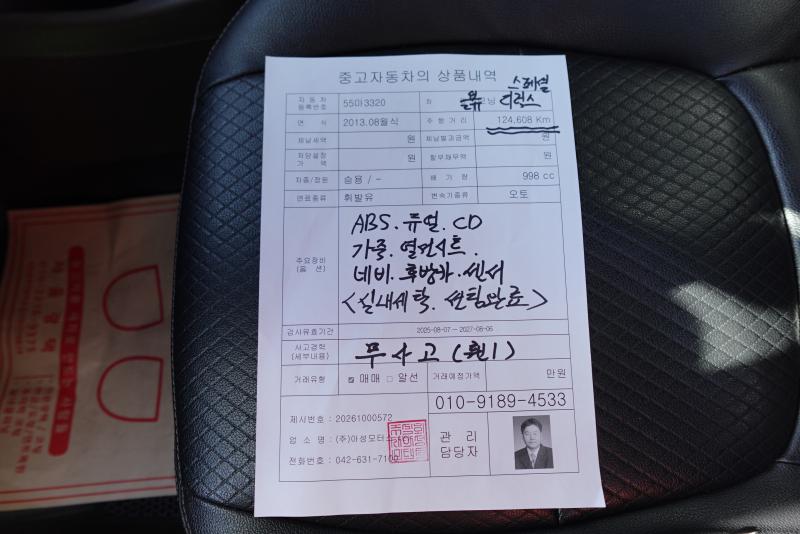 중고자동차의 상품내역
스페셜
자동차 등록번호 55마3320 차 모닝 디럭스
연 식 2013.08월식 주행거리 124,608 Km
체납세액 원 체납벌과금액 원
저당설정 가액 원 할부채무액 원
차종/정원 승용 / - 배기량 998 cc
연료종류 휘발유 변속기종류 오토
주요장비 (옵션)
ABS. 듀얼. CD
가죽. 열선시트.
네비. 후방카. 센서
<실내세탁. 썬팅완료>
검사유효기간 2025-08-07 ~ 2027-08-06
사고경력 (세부내용) 무사고 (휀1)
거래유형 ☑ 매매 □ 알선 거래예정가액 만원
010-9189-4533
제시번호 : 20261000572
업 소 명 : (주)아성모터스
전화번호 : 042-631-7100
관 리
담당자